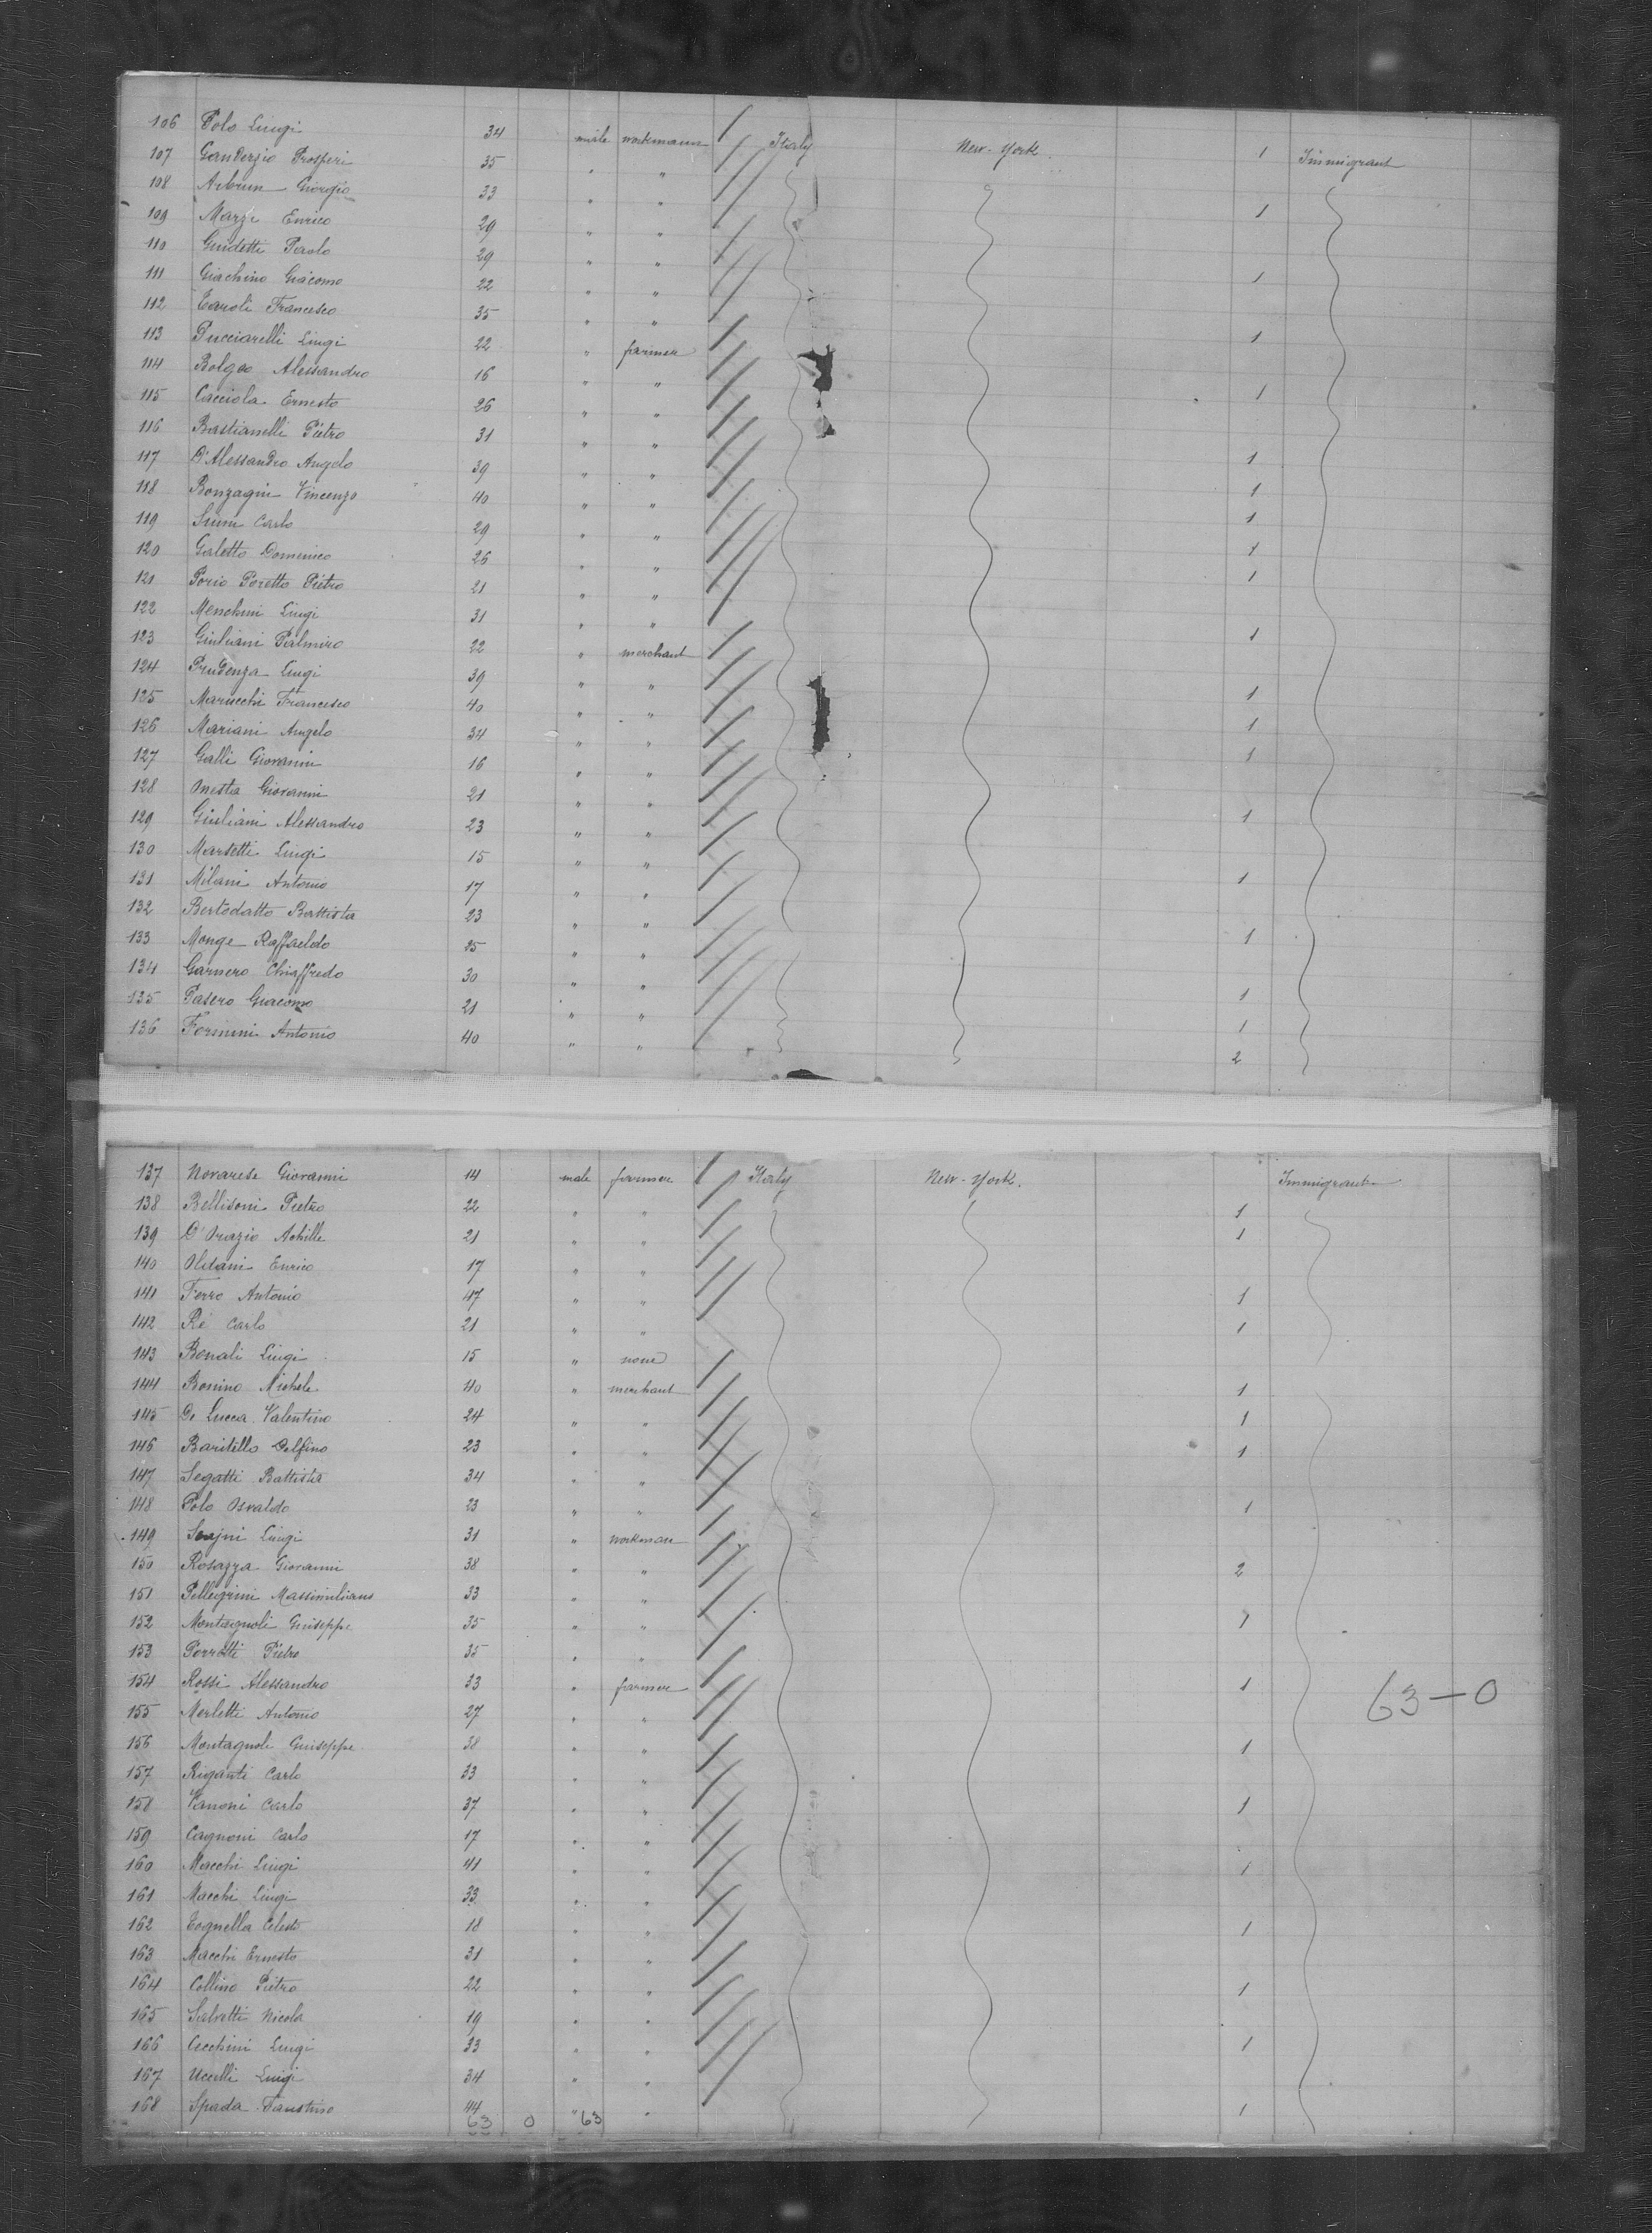 106 Polo Luigi 34 male workmann Italy New-York. 1 Immigrant
107 Gandorzio Prosperi 35 " "
108 Arbrun Giorgio 33 " "
109 Marzi Enrico 29 " " 1
110 Guidetti Paolo 29 " "
111 Giachino Giacomo 22 " " 1
112 Caroli Francesco 35 " "
113 Pucciarelli Luigi 22 " farmer 1
114 Bolgeo Alessandro 16 " "
115 Cacciola Ernesto 26 " " 1
116 Bastianelli Pietro 31 " "
117 D'Alessandro Angelo 39 " " 1
118 Bonzagni Vincenzo 40 " " 1
119 Simi Carlo 29 " " 1
120 Galetto Domenico 26 " " 1
121 Porio Poretto Pietro 21 " " 1
122 Menchini Luigi 31 " "
123 Giuliani Palmiro 22 " merchant 1
124 Prudenza Luigi 39 " "
125 Marucchi Francesco 40 " " 1
126 Mariani Angelo 34 " " 1
127 Galli Giovanni 16 " " 1
128 Onesta Giovanni 21 " "
129 Giuliani Alessandro 23 " " 1
130 Marsetti Luigi 15 " "
131 Milani Antonio 17 " " 1
132 Bertodatto Battista 23 " "
133 Monge Raffaeldo 25 " " 1
134 Garnero Chiaffredo 30 " "
135 Pasero Giacomo 21 " " 1
136 Fornini Antonio 40 " " 1
2
137 Novarese Giovanni 14 male farmer Italy New-York. Immigrant
138 Bellisoni Pietro 22 " " 1
139 D'Orazio Achille 21 " " 1
140 Oldani Enrico 17 " "
141 Ferro Antonio 47 " " 1
142 Re Carlo 21 " " 1
143 Bonali Luigi 15 " none
144 Bonino Michele 40 " merchant 1
145 De Lucca Valentino 24 " " 1
146 Baritello Delfino 23 " " 1
147 Segatti Battista 34 " "
148 Polo Osvaldo 23 " " 1
149 Luigi 31 " workman
150 Rosazza Giovanni 38 " " 2
151 Pellegrini Massimiliano 33 " "
152 Montagnoli Giuseppe 35 " " 1
153 Porratti Pietro 35 " "
154 Rossi Alessandro 33 " farmer 1 63-0
155 Merletti Antonio 27 " "
156 Montagnoli Giuseppe 38 " " 1
157 Riganti Carlo 33 " "
158 Vanoni Carlo 37 " " 1
159 Cagnoni Carlo 17 " "
160 Macchi Luigi 41 " " 1
161 Macchi Luigi 33 " "
162 Tognella Celeste 18 " " 1
163 Macchi Ernesto 31 " "
164 Collino Pietro 22 " " 1
165 Salvetti Nicola 19 " "
166 Cecchini Luigi 33 " " 1
167 Uccelli Luigi 34 " "
168 Spada Faustino 44 " " 1
63 0 63